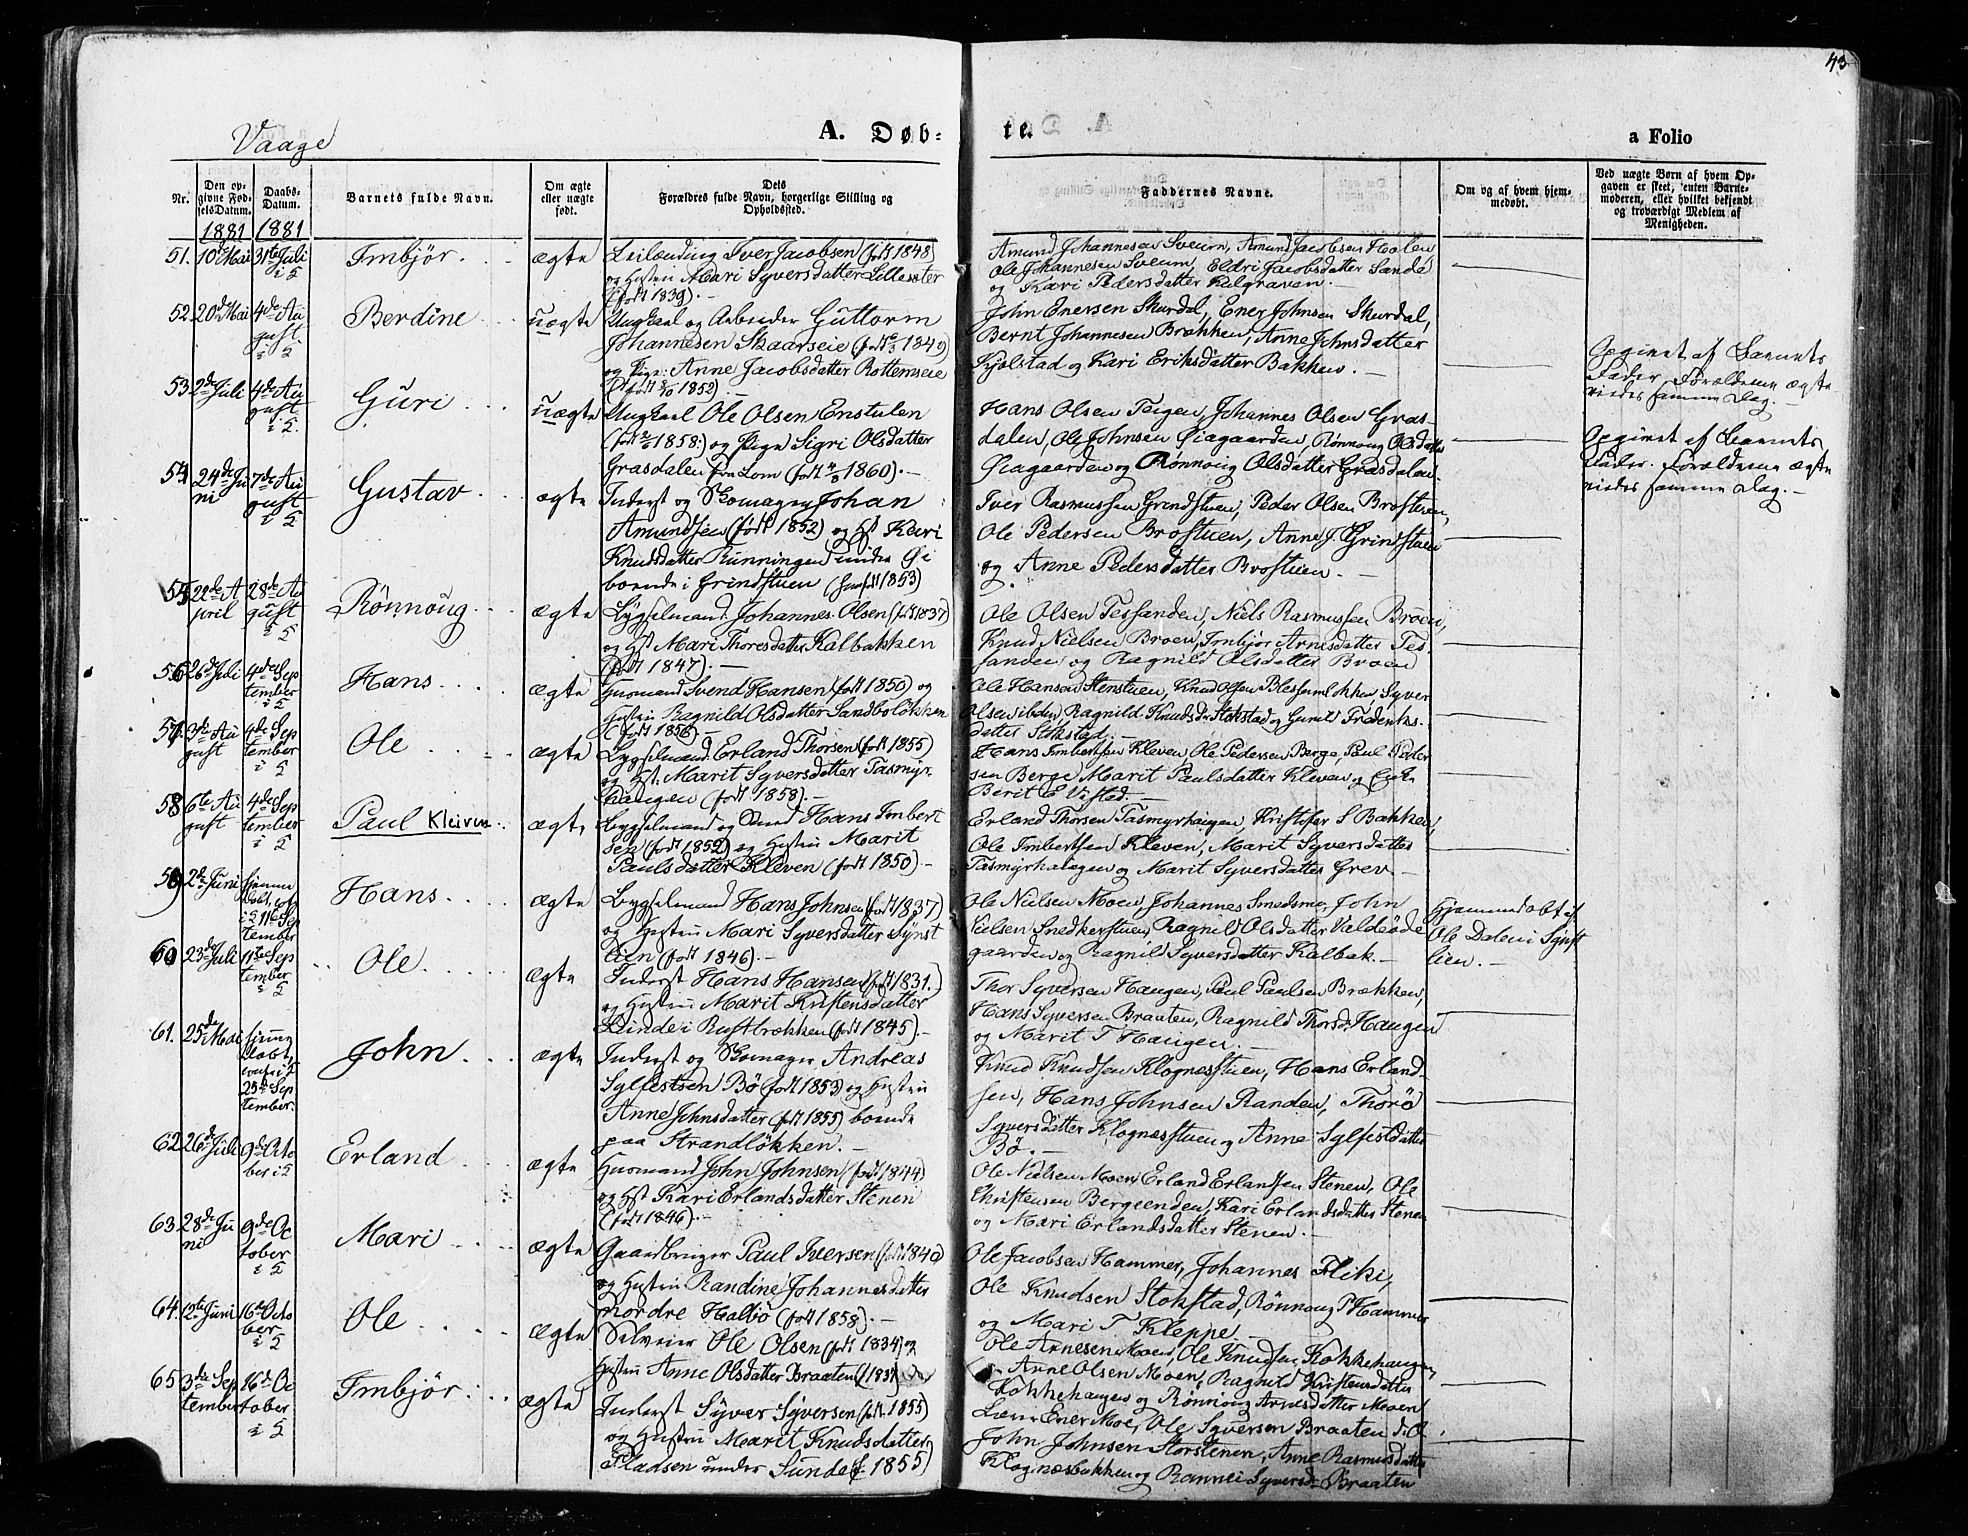 43
Vaage
A. Døb-
te.
a Folio
Nr.
Den op-
givne Fød-
selsDatum.
Daabs-
Datum.
Barnets fulde Navn.
Om ægte
eller uægte
født.
Dets
Forældres fulde Navn, borgerlige Stilling og
Opholdssted.
Faddernes Navne.
Om og af hvem hjem-
medøbt.
Ved uægte Børn af hvem Op-
gaven er skeet, enten Barne-
moderen, eller hvilket bekjendt
og troværdigt Medlem af
Menigheden.
1881
1881
51. 10de Mai 31te Juli i S
Imbjør
ægte
Leilending Iver Jacobsen (født 1848)
og Hustru Mari Syversdatter Lillesæter
(født 1839). —
Amund Johannesen Sveum, Amund Jacobsen Holen,
Ole Johannesen Sveum, Eldri Jacobsdatter Sande
og Kari Pedersdatter Kulgraven.
52. 20de Mai 4de Au
gust.
i S
Berdine
uægte
Ungkarl og Arbeider Guttorm
Johannesen Skaarseie (født 1849)
og Pige: Anne Jacobsdatter Rotterneie
(født 8/10 1852). —
John Enersen Skurdal, Ener Johnsen Skurdal,
Bernt Johannesen Brækken, Anne Johnsdatter
Kjolstad og Kari Eriksdatter Bakken. —
Opgivet af Barnets
Fader. Forældrene ægte
viedes samme Dag. —
53. 2de Juli 4de Au
gust
i S.
Guri
uægte
Ungkarl Ole Olsen Enstulen
(født 1858:) og Pige Sigri Olsdatter
Grasdalen fra Lom (født 1860). —
Hans Olsen Teigen, Johannes Olsen Gras-
dalen, Ole Johnsen Øiagaarden, Rønnoug Olsdatter
Øiagaarden og Rønnoug Olsdatter Grasdalen.
Opgivet af Barnets
Fader. Forældrene ægte
viedes samme Dag. —
54 24de Ju
ni
7de Au
gust
i S
Gustav
ægte
Inderst og Skomager Johan
Amundsen (født 1852) og Hst Kari
Knudsdatter Runningen under Øi
boende i Grindstuen (Hun født 1853)
Iver Rasmussen Grindstuen, Peder Olsen Brostuen,
Ole Pedersen Brostuen, Anne J. Grindstuen
og Anne Pedersdatter Brostuen. —
55 22de A
pril
28de Au
gust
i S
Rønnoug
ægte
Bygselmand Johannes Olsen (født 1837)
og Hst Mari Thoresdatter Kalbakken
(født 1847). —
Ole Olsen Tessanden, Niels Rasmussen Broen,
Knud Nielsen Broen, Imbjør Arnesdatter Tes-
sanden og Ragnild Olsdatter Broen
56 26de Juli 4de Sep
tember
i S
Hans
ægte
Husmand Svend Hansen (født 1850) og
Hustru Ragnild Olsdatter Sandboløkken
(født 1856). —
Ole Hansen Stenstuen, Knud Olsen Blessumløkken Syver
Olsen ibdem, Ragnild Knudsdr Stokstad og Gunild Frederiks-
datter Stokstad. —
57. 3die Au
gust
4de Sep
tember
i S
Ole
ægte
Bygselmand Erland Thorsen (født 1855)
og Hst. Marit Syversdatter Tasmyr-
haugen (født 1858). —
Hans Imbertsen Kleven, Ole Pedersen Berge, Paul Peder
sen Berge Marit Paulsdatter Kleven og
Berit E Visted. —
58 6te Au
gust
4de Sep
tember
i S
Paul Kleiven
ægte
Bygselmand og Smed Hans Imbert
sen (født 1852) og Hustru Marit
Paulsdatter Kleven (født 1850) —
Erland Thorsen Tasmyrhaugen, Kristofer S Bakken,
Ole Imbertsen Kleven, Marit Syversdatter
Tasmyrhaugen og Marit Syversdatter Grev —
59 2de Juni hjemme
døbt,
i S 11te Sep
tember
Hans
ægte
Bygselmand Hans Johnsen (født 1837)
og Hustru Mari Syversdatter Synst
lien (født 1846). —
Ole Nielsen Moen, Johannes Smedsmo, John
Nielsen Snedkerstuen, Ragnild Olsdatter Valdeøde
gaarden og Ragnild Syversdatter Kalbak. —
Hjemmedøbt af
Ole Dalen i Synst
lien. —
60 23de Juli 11te Sep
tember
i S
Ole
ægte
Inderst Hans Hansen (født 1831.)
og Hustru Marit Kristensdatter
Linde i Rustbrækken (født 1845). —
Thor Syversen Haugen, Paul Paulsen Brækken,
Hans Syversen Braaten, Ragnild Thorsdr Haugen
og Marit T Haugen. —
61. 25de Mai hjemme
døbt,
i S
25de Sep
tember.
John
ægte
Inderst og Skomager Andreas
Sylfestsen Bø (født 1853) og Hustru
Anne Johnsdatter (født 1855) boende
paa Strandløkken. —
Knud Knudsen Klognesstuen, Hans Erland-
sen, Hans Johnsen Randen, Thorø
Syversdatter Klognesstuen og Anne Sylfestdatter
Bø. —
62 26de Juli 9de Octo
ber i S
Erland
ægte
Husmand John Johnsen (født 1844)
og Hst Kari Erlandsdatter Stenen
(født 1846). —
Ole Nielsen Moen, Erland Erlandsen Stenen, Ole
Christensen Bergeenden, Kari Erlandsdatter Stenen
og Mari Erlandsdatter Stenen. —
63. 28de Ju
ni
9de Oc
tober
i S
Mari
ægte
Gaardbruger Paul Iversen (født 1840)
og Hustru Randine Johannesdatter
nordre Halbø (født 1858). —
Ole Jacobsen Hammer, Johannes Fliki,
Ole Knudsen Stokstad, Rønnoug P Hammer
og Mari T Kleppe. —
64. 12te Juni 16de Octo
ber
i S
Ole
ægte
Selveier Ole Olsen (født 1834) og
Hustru Anne Olsdatter Braaten (f 1837)
Ole Arnesen Moen, Ole Knudsen Kokkehaugen,
Arne Olsen Moen, Ragnild Kristensdatter
Kokkehaugen og Rønnoug Arnesdatter Moen
65 3die Sep
tember
16de Oc
tober
i S
Imbjør
ægte
Inderst Syver Syversen (født 1855)
og Hustru Marit Knudsdatter
Pladsen under Sunde (f. 1855)
Ener Moe, Ole Syversen Braaten
John Johnsen Storstenen, Anne Rasmusdatter
Klognesbakken og Rannei Syversdr Braaten